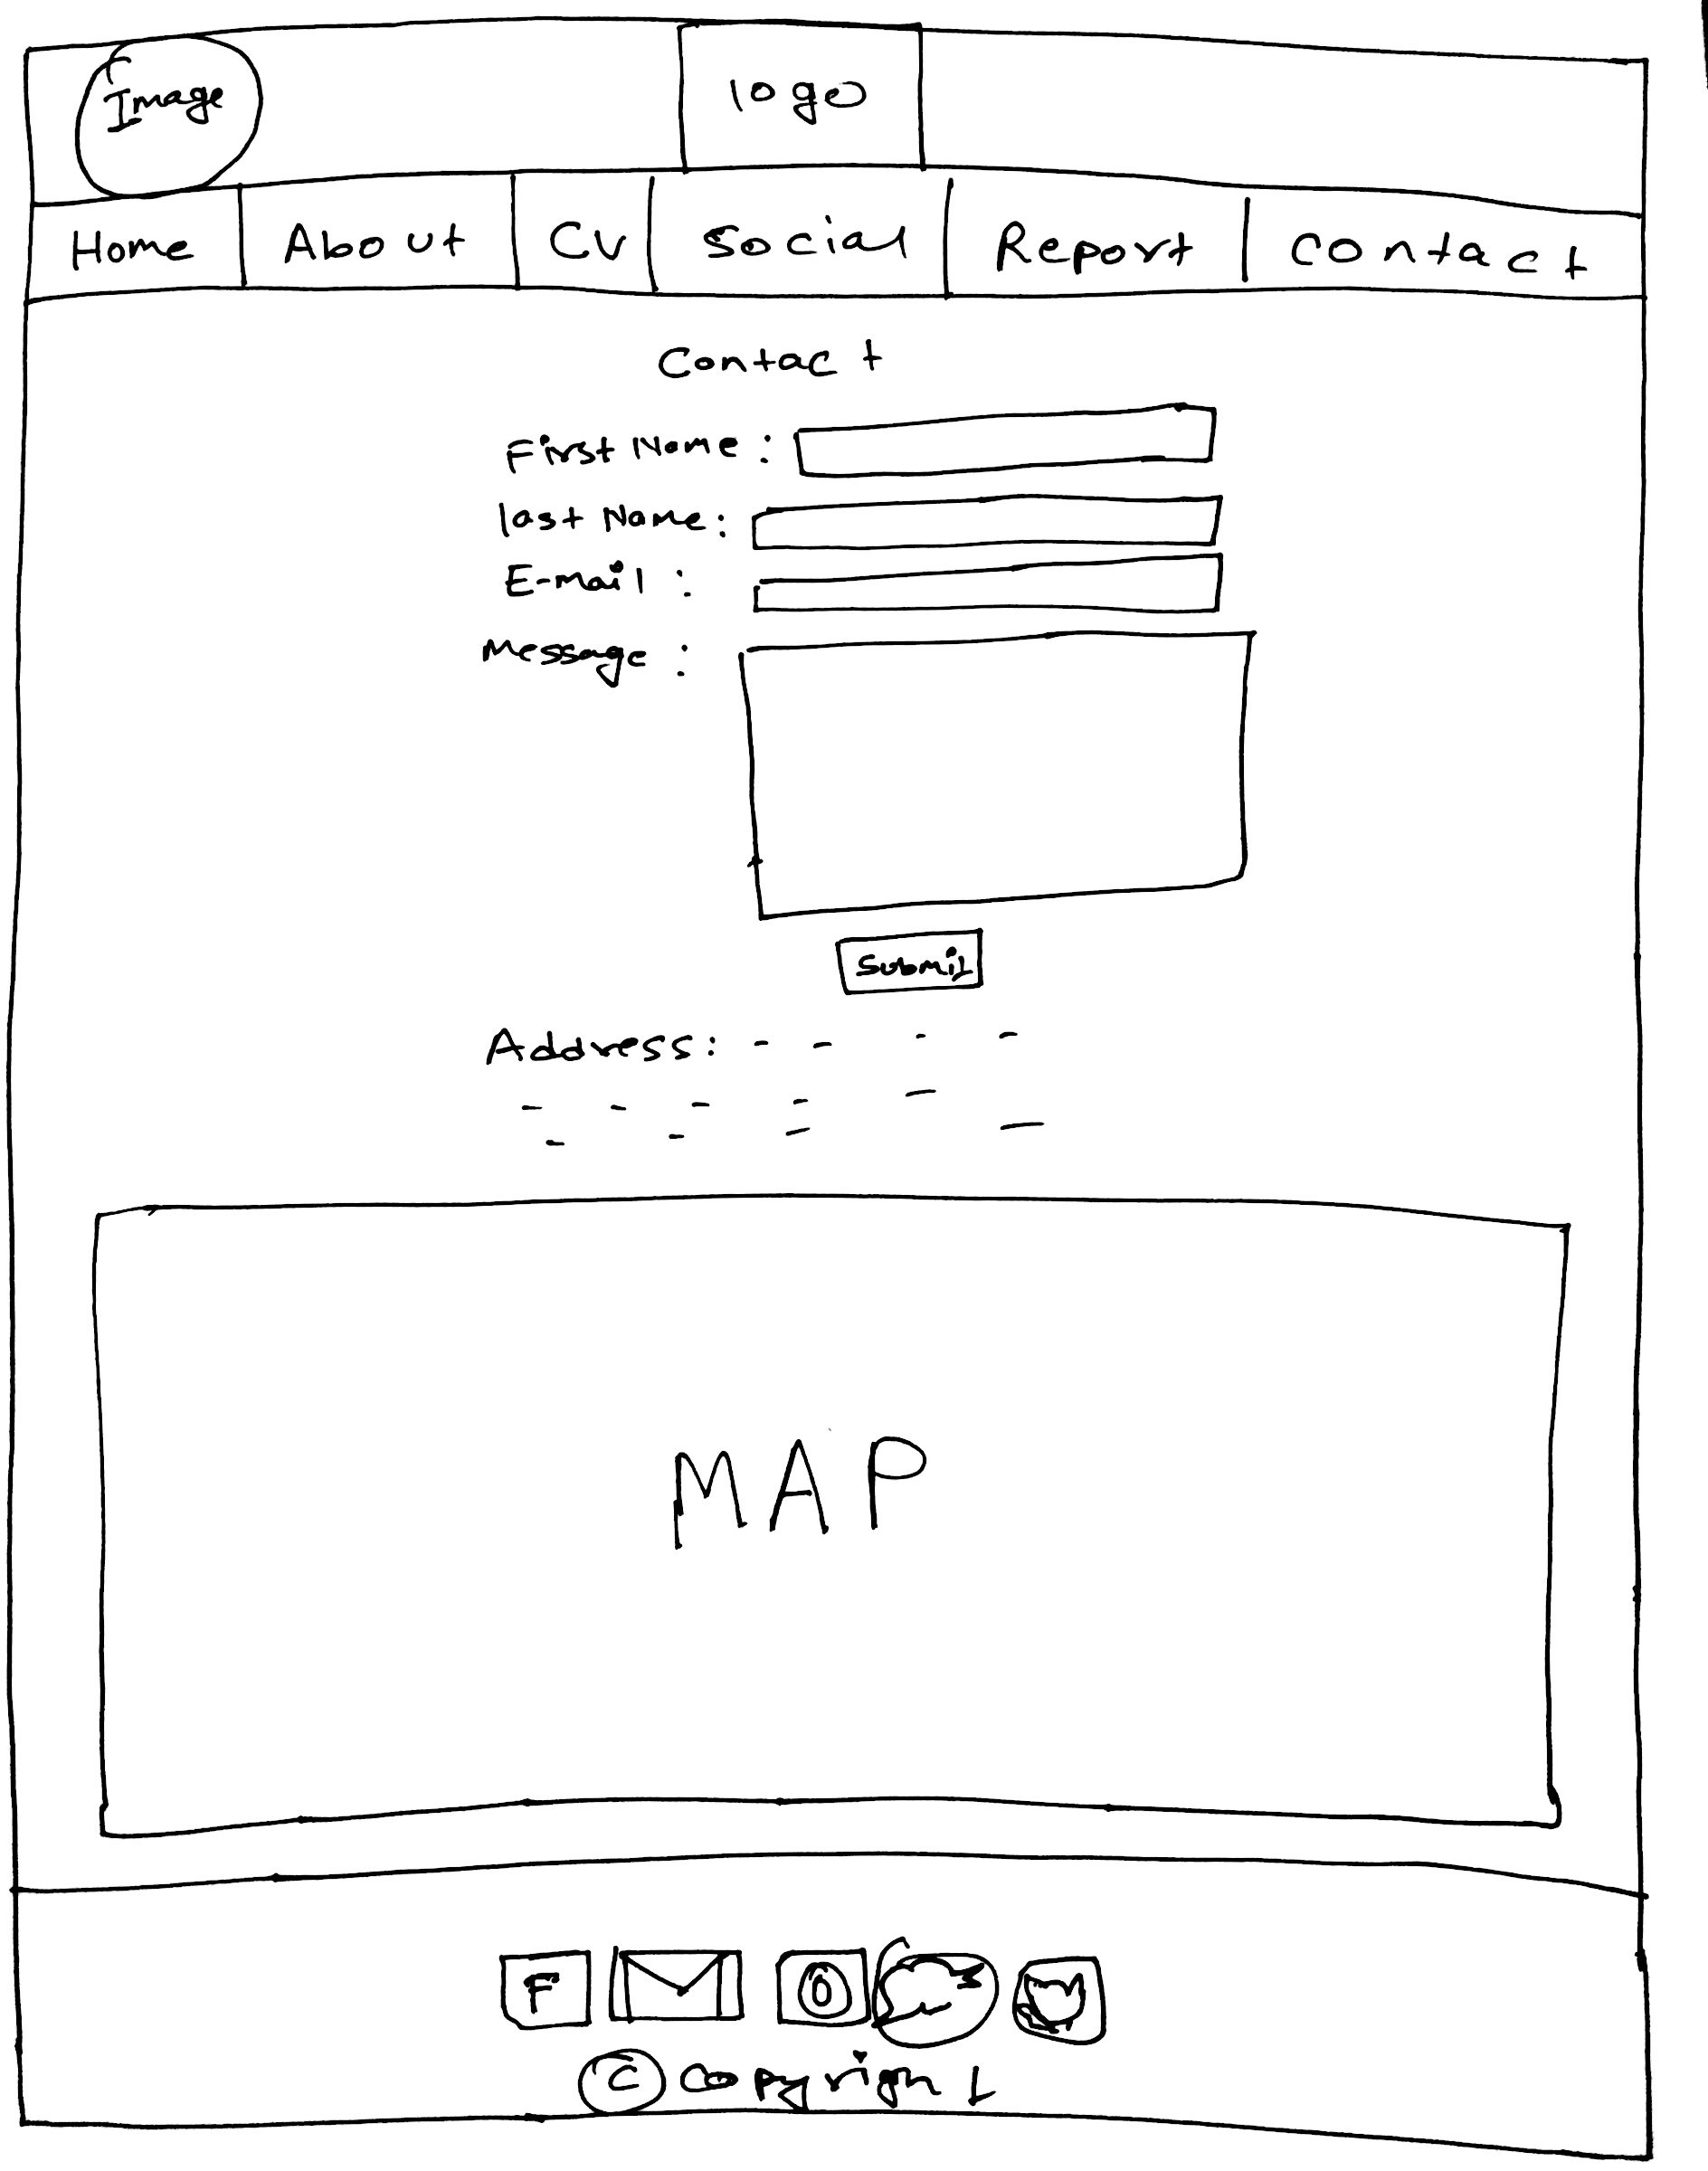 Image
logo
Home About CV Social Report Contact
Contact
First Name :
last Name :
E-mail :
Message :
Submit
Address: - - - -
MAP
F
© Copyright